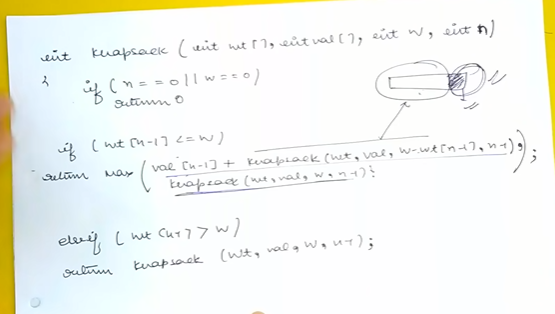 int knapsack (int wt[], int val[], int w, int n)
{
if (n == 0 || w == 0)
return 0
if (wt[n-1] <= w)
return max (val[n-1] + knapsack (wt, val, w-wt[n-1], n-1),
knapsack (wt, val, w, n-1));
elseif (wt[n-1] > w)
return knapsack (wt, val, w, n-1);